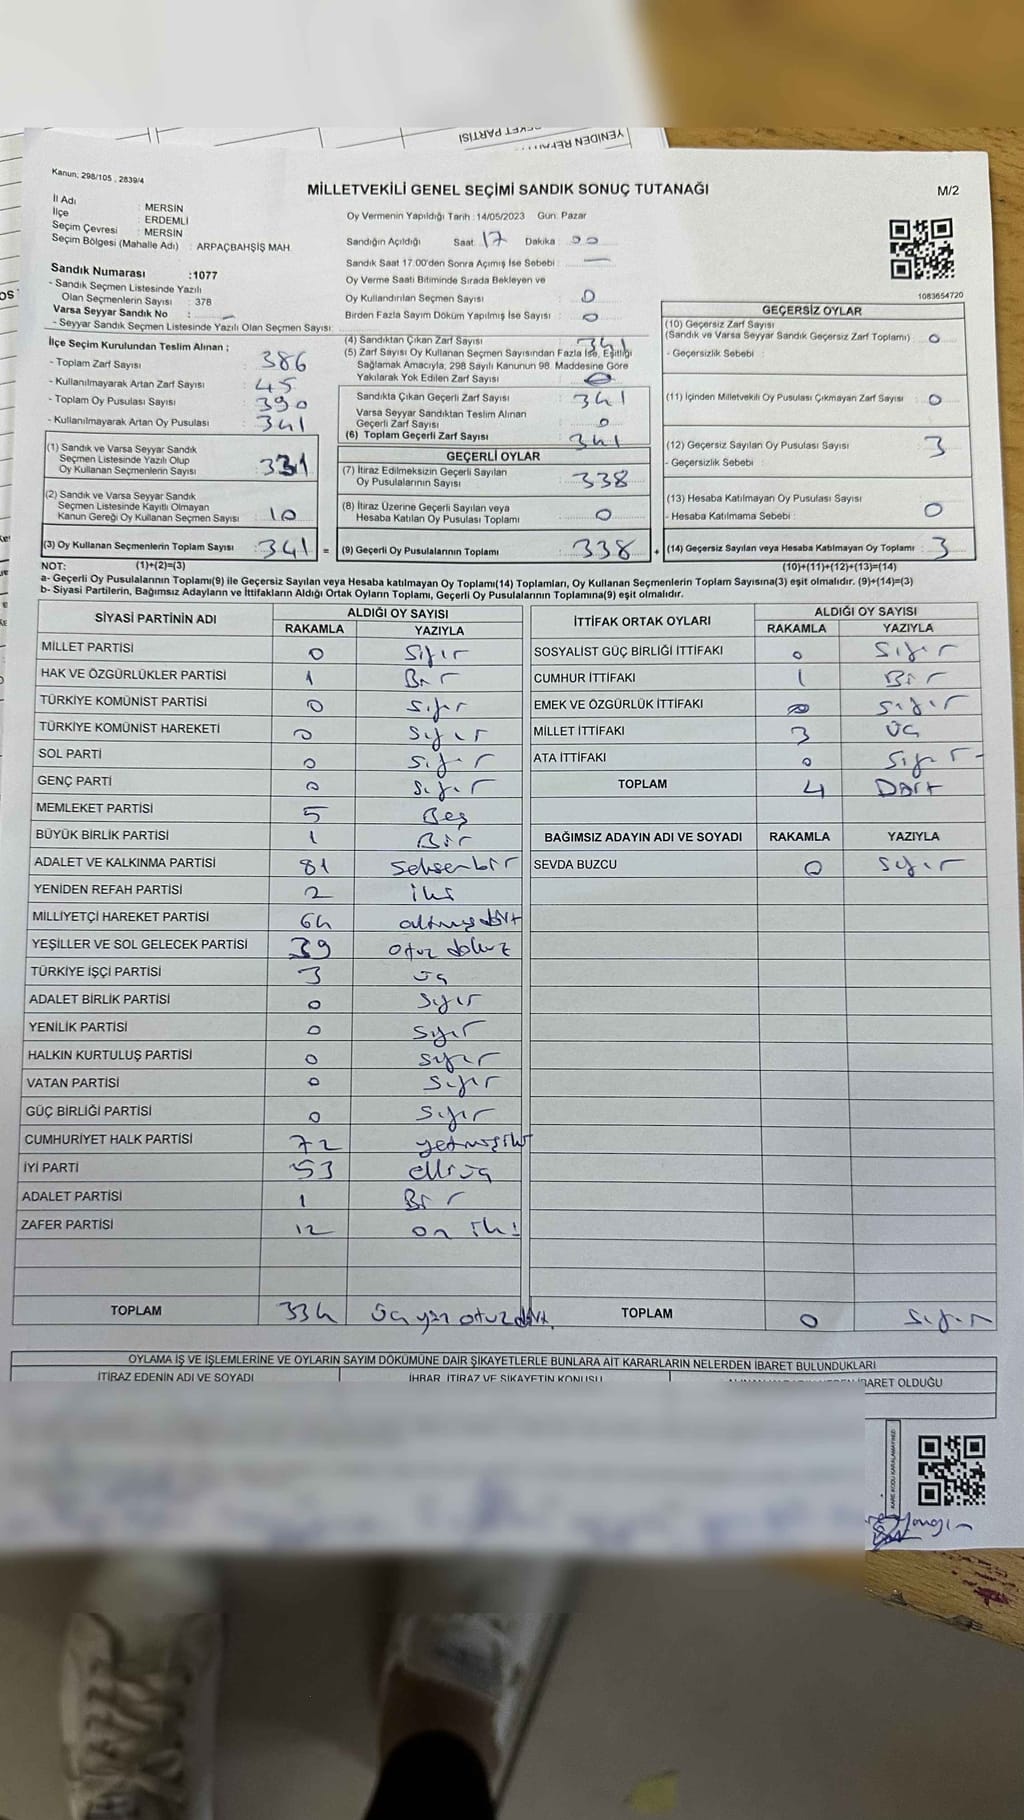 YENİDEN REFAH PARTİSİ
Kanun: 298/105 , 2839/4
MİLLETVEKİLİ GENEL SEÇİMİ SANDIK SONUÇ TUTANAĞI
M/2
İl Adı : MERSİN
İlçe : ERDEMLİ
Seçim Çevresi : MERSİN
Seçim Bölgesi (Mahalle Adı) : ARPAÇBAHŞİŞ MAH.
Oy Vermenin Yapıldığı Tarih : 14/05/2023 Gün: Pazar
Sandığın Açıldığı Saat 17 Dakika : 00
Sandık Saat 17.00'den Sonra Açılmış İse Sebebi : —
Oy Verme Saati Bitiminde Sırada Bekleyen ve
Oy Kullandırılan Seçmen Sayısı : 0
Birden Fazla Sayım Döküm Yapılmış İse Sayısı : 0
Sandık Numarası : 1077
- Sandık Seçmen Listesinde Yazılı
Olan Seçmenlerin Sayısı : 378
Varsa Seyyar Sandık No : —
- Seyyar Sandık Seçmen Listesinde Yazılı Olan Seçmen Sayısı:
1083654720
İlçe Seçim Kurulundan Teslim Alınan ;
- Toplam Zarf Sayısı : 386
- Kullanılmayarak Artan Zarf Sayısı : 45
- Toplam Oy Pusulası Sayısı : 390
- Kullanılmayarak Artan Oy Pusulası : 341
(1) Sandık ve Varsa Seyyar Sandık
Seçmen Listesinde Yazılı Olup
Oy Kullanan Seçmenlerin Sayısı : 331
(2) Sandık ve Varsa Seyyar Sandık
Seçmen Listesinde Kayıtlı Olmayan
Kanun Gereği Oy Kullanan Seçmen Sayısı : 10
(3) Oy Kullanan Seçmenlerin Toplam Sayısı : 341 =
(4) Sandıktan Çıkan Zarf Sayısı : 341
(5) Zarf Sayısı Oy Kullanan Seçmen Sayısından Fazla İse, Eşitliği
Sağlamak Amacıyla, 298 Sayılı Kanunun 98. Maddesine Göre
Yakılarak Yok Edilen Zarf Sayısı : 0
Sandıkta Çıkan Geçerli Zarf Sayısı : 341
Varsa Seyyar Sandıktan Teslim Alınan
Geçerli Zarf Sayısı : 0
(6) Toplam Geçerli Zarf Sayısı : 341
GEÇERLİ OYLAR
(7) İtiraz Edilmeksizin Geçerli Sayılan
Oy Pusulalarının Sayısı : 338
(8) İtiraz Üzerine Geçerli Sayılan veya
Hesaba Katılan Oy Pusulası Toplamı : 0
(9) Geçerli Oy Pusulalarının Toplamı : 338 +
GEÇERSİZ OYLAR
(10) Geçersiz Zarf Sayısı
(Sandık ve Varsa Seyyar Sandık Geçersiz Zarf Toplamı) : 0
- Geçersizlik Sebebi :
(11) İçinden Milletvekili Oy Pusulası Çıkmayan Zarf Sayısı : 0
(12) Geçersiz Sayılan Oy Pusulası Sayısı : 3
- Geçersizlik Sebebi :
(13) Hesaba Katılmayan Oy Pusulası Sayısı : 0
- Hesaba Katılmama Sebebi :
(14) Geçersiz Sayılan veya Hesaba Katılmayan Oy Toplamı : 3
NOT: (1)+(2)=(3) (10)+(11)+(12)+(13)=(14)
a- Geçerli Oy Pusulalarının Toplamı(9) ile Geçersiz Sayılan veya Hesaba katılmayan Oy Toplamı(14) Toplamları, Oy Kullanan Seçmenlerin Toplam Sayısına(3) eşit olmalıdır. (9)+(14)=(3)
b- Siyasi Partilerin, Bağımsız Adayların ve İttifakların Aldığı Ortak Oyların Toplamı, Geçerli Oy Pusulalarının Toplamına(9) eşit olmalıdır.
SİYASİ PARTİNİN ADI ALDIĞI OY SAYISI
RAKAMLA YAZIYLA
MİLLET PARTİSİ 0 Sıfır
HAK VE ÖZGÜRLÜKLER PARTİSİ 1 Bir
TÜRKİYE KOMÜNİST PARTİSİ 0 Sıfır
TÜRKİYE KOMÜNİST HAREKETİ 0 Sıfır
SOL PARTİ 0 Sıfır
GENÇ PARTİ 0 Sıfır
MEMLEKET PARTİSİ 5 Beş
BÜYÜK BİRLİK PARTİSİ 1 Bir
ADALET VE KALKINMA PARTİSİ 81 Seksenbir
YENİDEN REFAH PARTİSİ 2 iki
MİLLİYETÇİ HAREKET PARTİSİ 64 altmışdört
YEŞİLLER VE SOL GELECEK PARTİSİ 39 otuz dokuz
TÜRKİYE İŞÇİ PARTİSİ 3 üç
ADALET BİRLİK PARTİSİ 0 Sıfır
YENİLİK PARTİSİ 0 Sıfır
HALKIN KURTULUŞ PARTİSİ 0 Sıfır
VATAN PARTİSİ 0 Sıfır
GÜÇ BİRLİĞİ PARTİSİ 0 Sıfır
CUMHURİYET HALK PARTİSİ 72 yetmişiki
İYİ PARTİ 53 elli üç
ADALET PARTİSİ 1 Bir
ZAFER PARTİSİ 12 on iki
TOPLAM 334 üç yüz otuz dört
İTTİFAK ORTAK OYLARI ALDIĞI OY SAYISI
RAKAMLA YAZIYLA
SOSYALİST GÜÇ BİRLİĞİ İTTİFAKI 0 Sıfır
CUMHUR İTTİFAKI 1 Bir
EMEK VE ÖZGÜRLÜK İTTİFAKI 0 Sıfır
MİLLET İTTİFAKI 3 üç
ATA İTTİFAKI 0 Sıfır
TOPLAM 4 Dört
BAĞIMSIZ ADAYIN ADI VE SOYADI RAKAMLA YAZIYLA
SEVDA BUZCU 0 Sıfır
TOPLAM 0 Sıfır
OYLAMA İŞ VE İŞLEMLERİNE VE OYLARIN SAYIM DÖKÜMÜNE DAİR ŞİKAYETLERLE BUNLARA AİT KARARLARIN NELERDEN İBARET BULUNDUKLARI
İTİRAZ EDENİN ADI VE SOYADI İHBAR, İTİRAZ VE ŞİKAYETİN KONUSU İBARET OLDUĞU
KARE KODU KARALAMAYINIZ